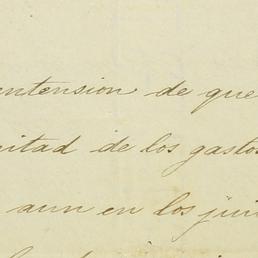 entension de que
mitad de los gastos
aun en los jui